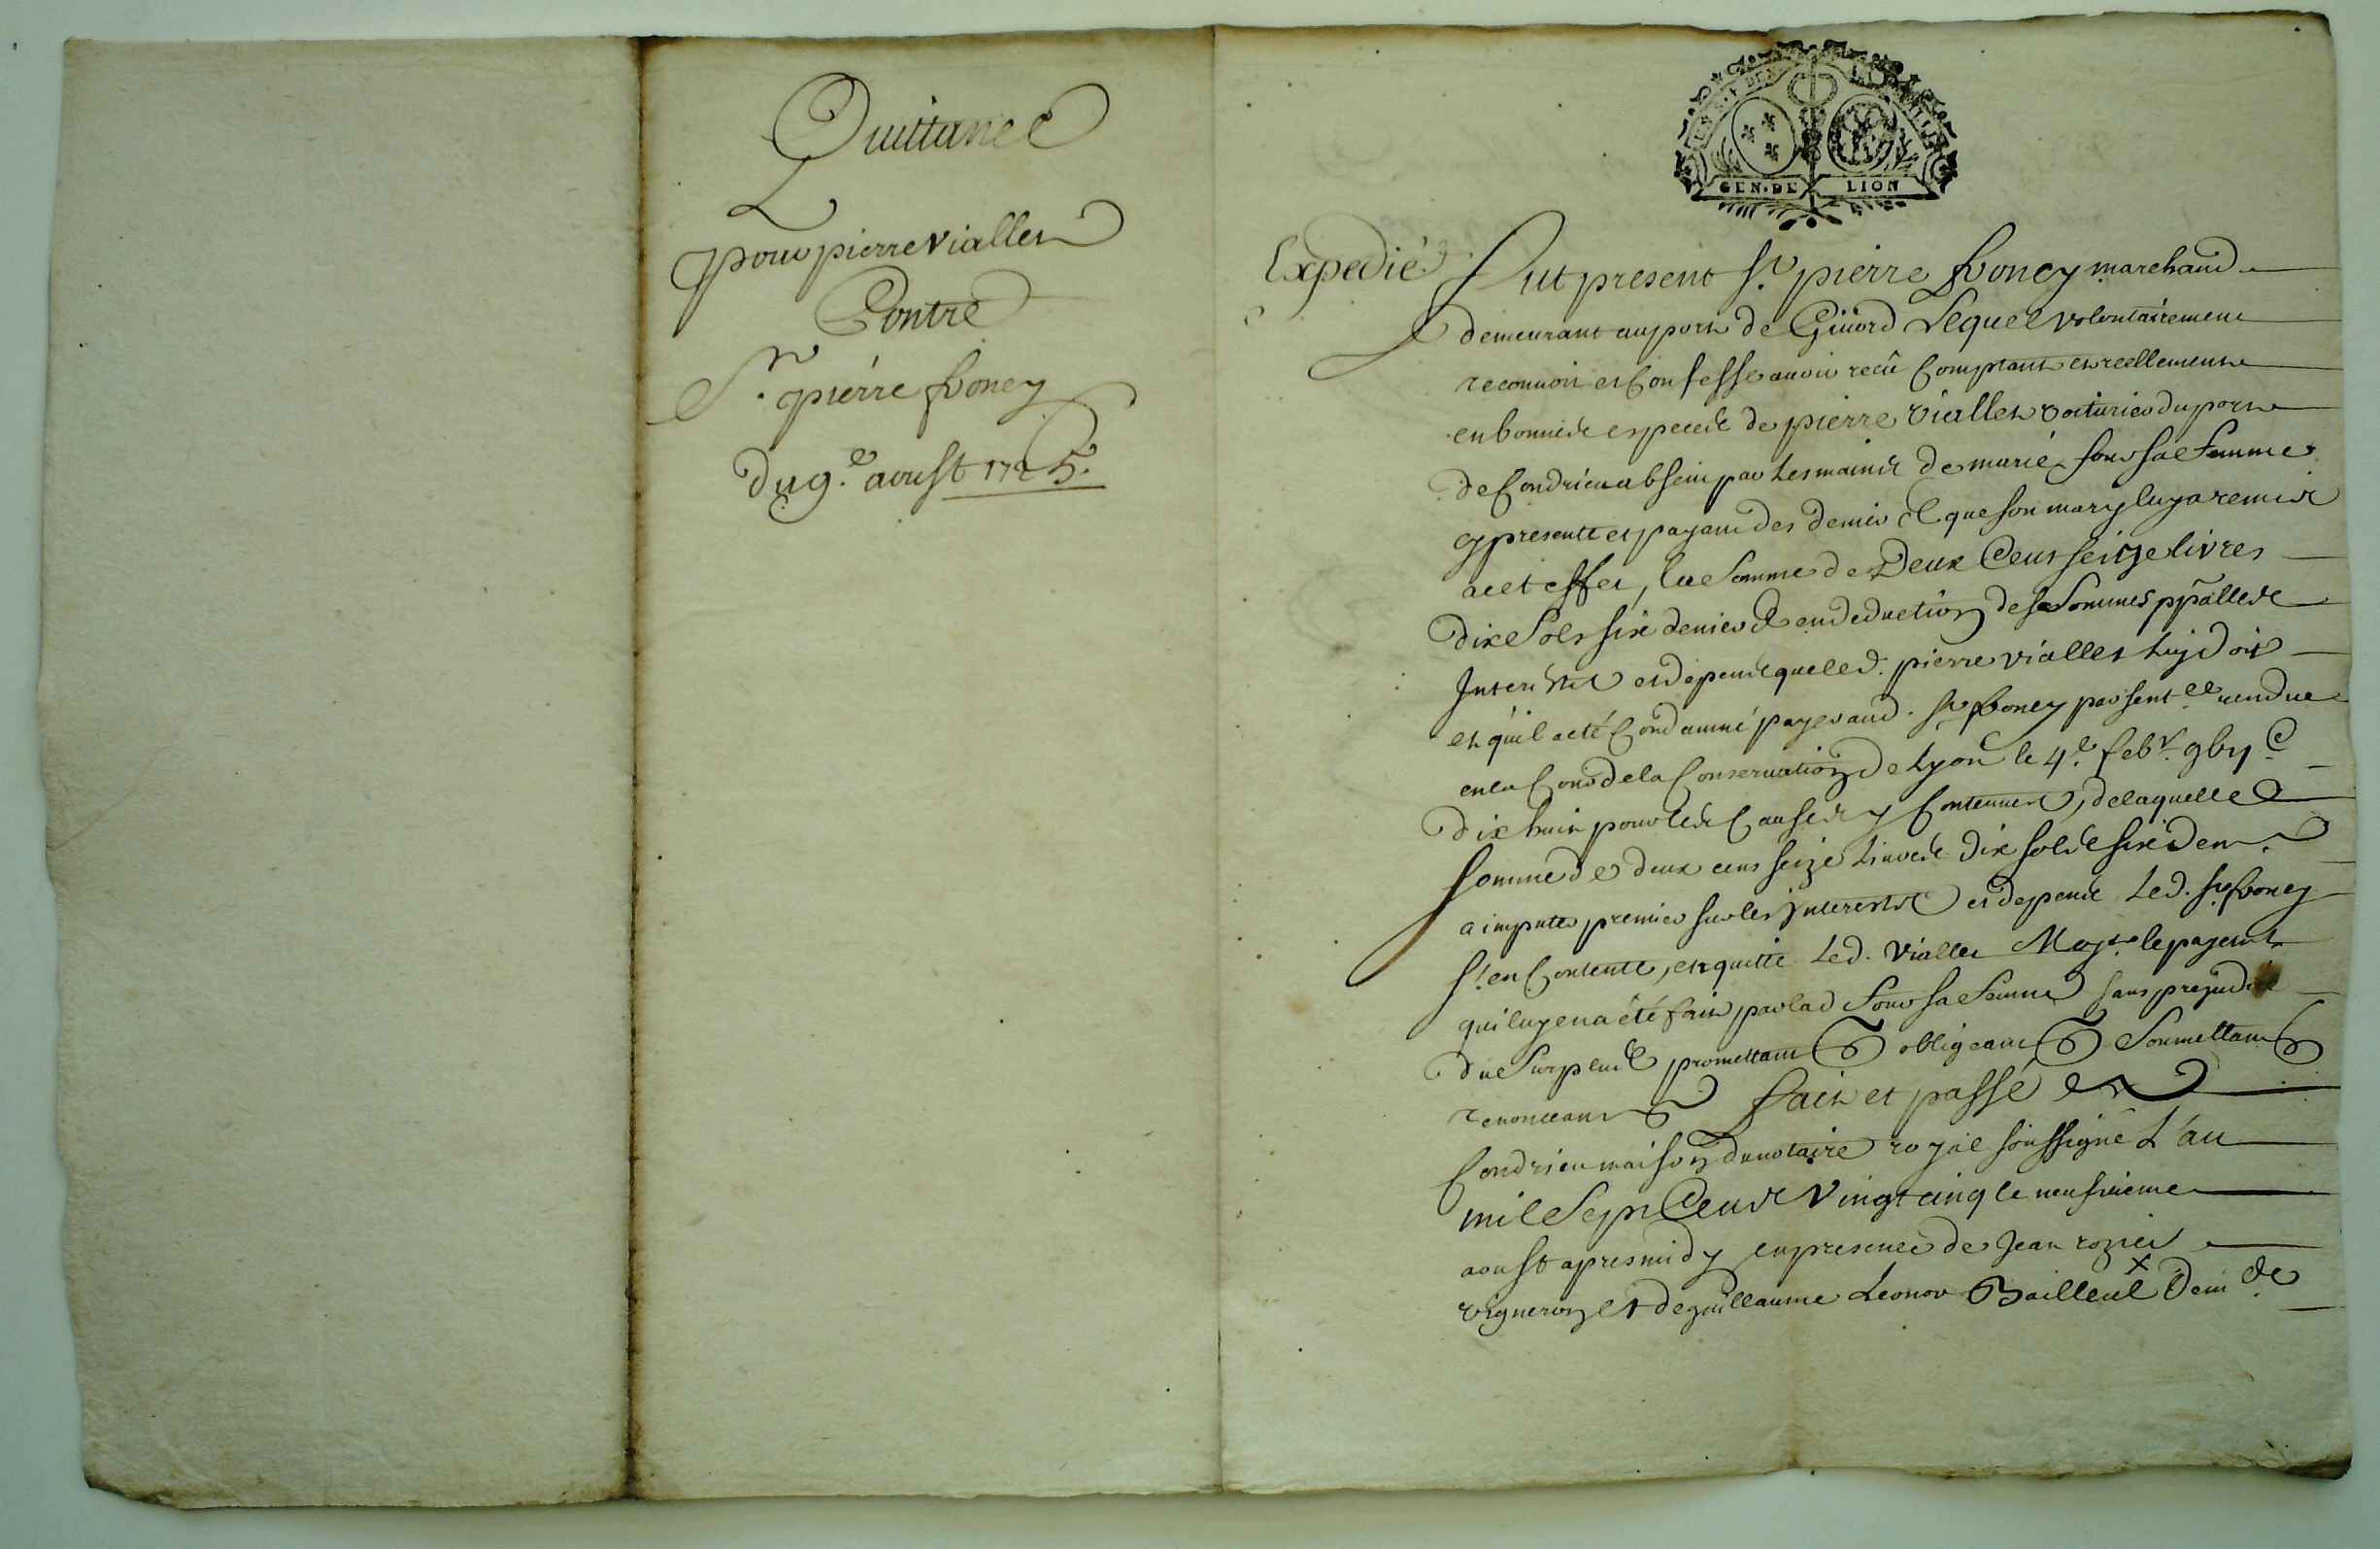 Quittance
pour pierre viallet
Contre
Sr. pierre fboney
du 9.e aoust 1725.
GEN. DE LION
Expedié
Fut present Sr. pierre fboney marchand
demeurant au port de Givord Lequel volontairement
reconnoit et Confesse avoir recû Comptant et reellement
en bonnes especes de pierre viallet voiturier du port
de Condrieu absent par les mains de marie four sa femme
cy presente et payant des deniers que son mary luy a remis
a cet effet, la Somme de Deux Cent seize livres
dix Sols six deniers en deduction des Sommes ppalles
Interests et depens que led. pierre viallet luy doit
et qu'il a eté Condamné payer aud. Sr fboney par sent.ce rendue
en la Cour de la Conservation de Lyon le 4.e febv.r
dix huit pour les Causes y Contenues, de laquelle
somme de deux cens seize Livres dix sols six den.
a imputer premier sur les Interests et depens Led. Sr. fboney
s'en Contente, et quitte Led. viallet Moy.t le payem.t
qui luy en a été fait par lad four sa femme sans prejudice
du Surplus promettant obligeant Soumettant
renonceant fait et passé
Condrieu maison du notaire royal soussigné L'an
mil Sept Cens Vingt cinq le neufvieme
aoust apres midy en presence de Jean rozier
vigneron et de guillaume Leonor Bailleul dem.